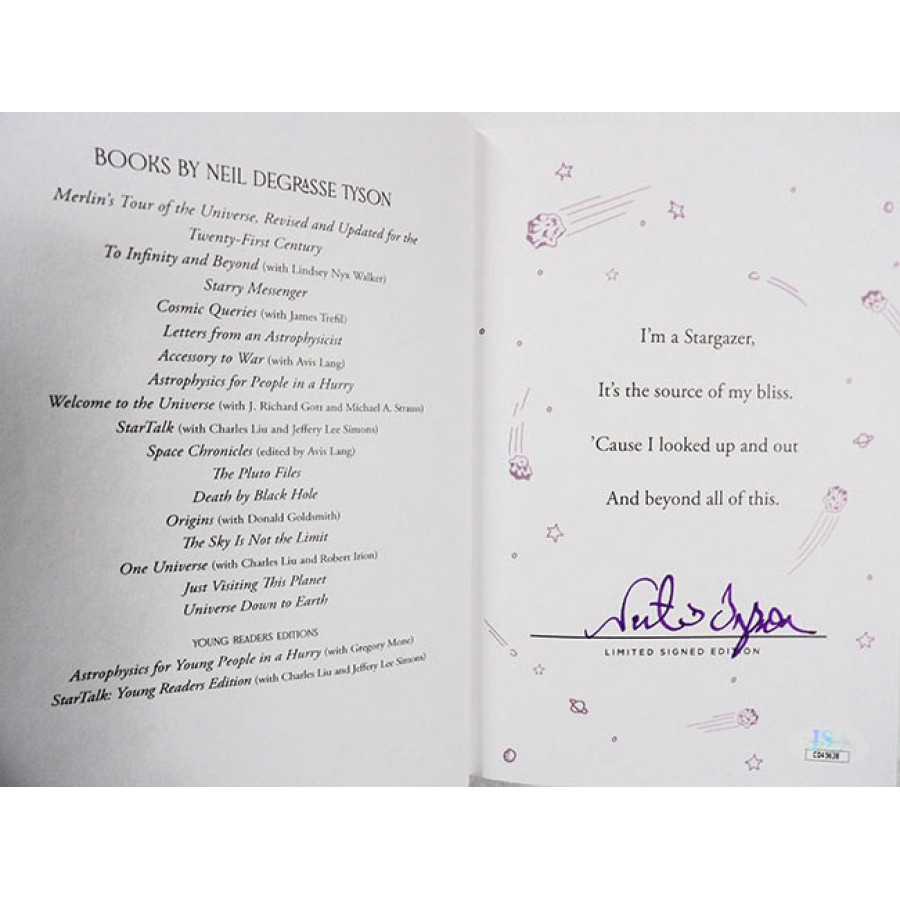 BOOKS BY NEIL DEGRASSE TYSON
Merlin's Tour of the Universe, Revised and Updated for the
Twenty-First Century
To Infinity and Beyond (with Lindsey Nyx Walker)
Starry Messenger
Cosmic Queries (with James Trefil)
Letters from an Astrophysicist
Accessory to War (with Avis Lang)
Astrophysics for People in a Hurry
Welcome to the Universe (with J. Richard Gott and Michael A. Strauss)
StarTalk (with Charles Liu and Jeffery Lee Simons)
Space Chronicles (edited by Avis Lang)
The Pluto Files
Death by Black Hole
Origins (with Donald Goldsmith)
The Sky Is Not the Limit
One Universe (with Charles Liu and Robert Irion)
Just Visiting This Planet
Universe Down to Earth
YOUNG READERS EDITIONS
Astrophysics for Young People in a Hurry (with Gregory Mone)
StarTalk: Young Readers Edition (with Charles Liu and Jeffery Lee Simons)
I'm a Stargazer,
It's the source of my bliss.
'Cause I looked up and out
And beyond all of this.
Tyson
LIMITED SIGNED EDITION